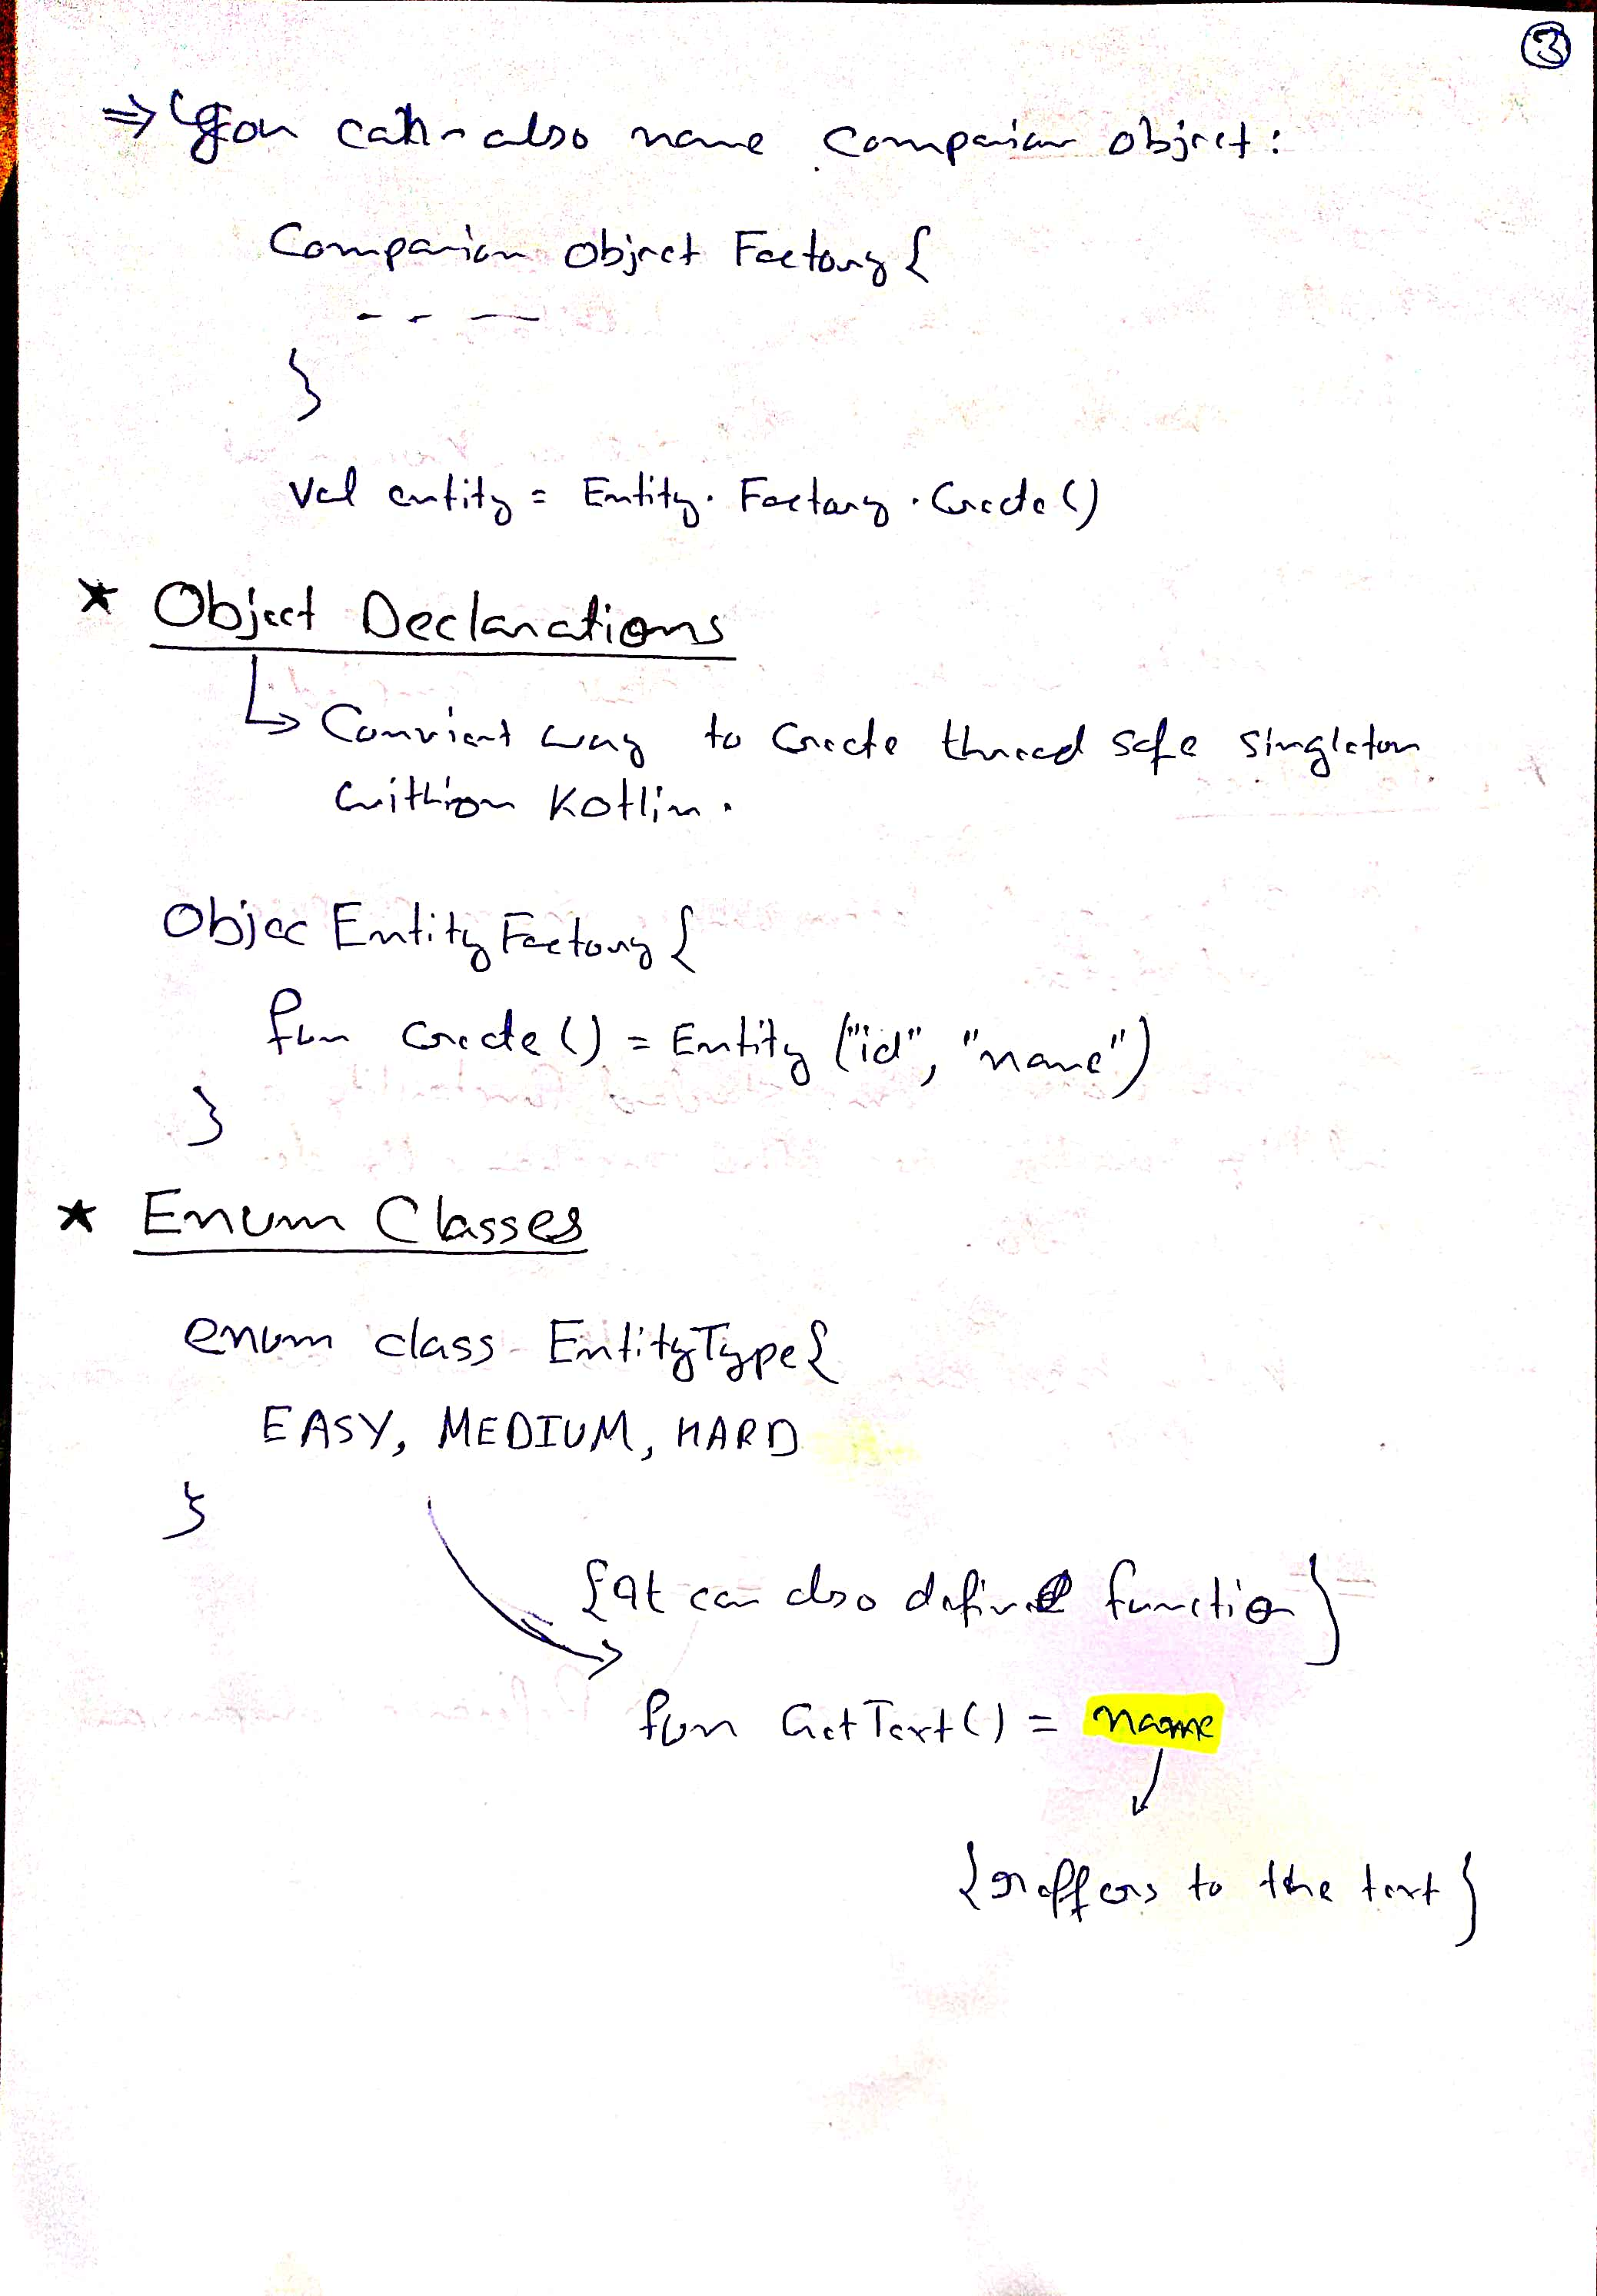 3
⇒ You can also name companion object:
Companion Object Factory {
- - —
}
val entity = Entity. Factory . Create ()
* Object Declarations
↳ Convient way to Create thread safe singleton
within Kotlin.
Objec Entity Factory {
fun create () = Entity ("id", "name")
}
* Enum Classes
enum class EntityType {
EASY, MEDIUM, HARD
}
{It can also define function}
fun GetText() = name
{reffers to the text}